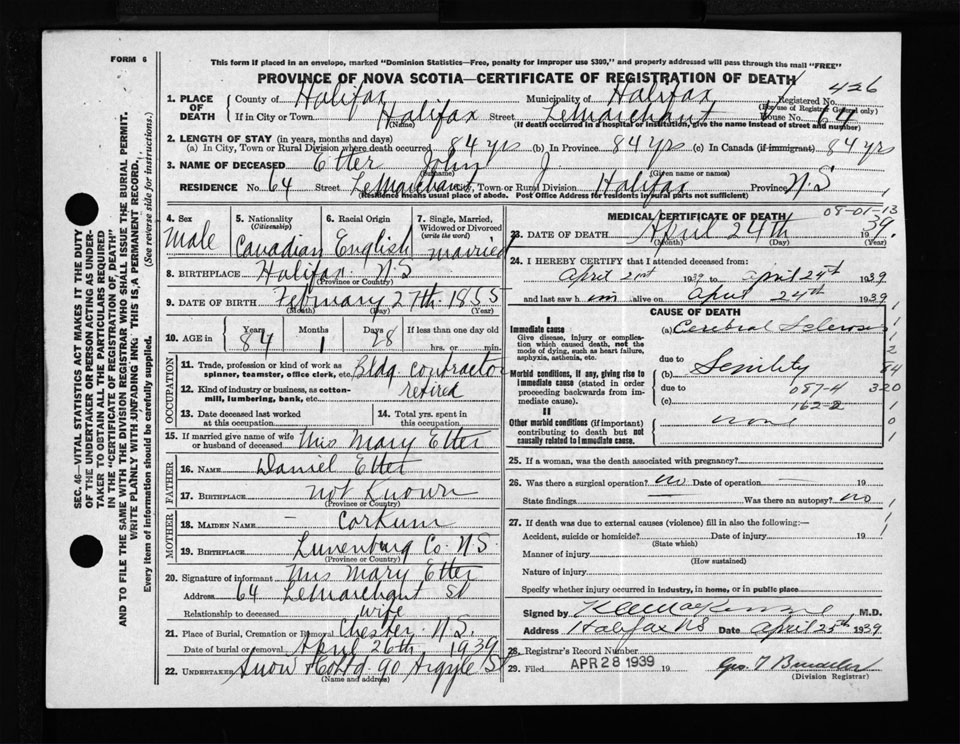 FORM 6
This form if placed in an envelope, marked "Dominion Statistics—Free, penalty for improper use $300," and properly addressed will pass through the mail "FREE"
PROVINCE OF NOVA SCOTIA—CERTIFICATE OF REGISTRATION OF DEATH
426
1. PLACE OF DEATH
County of Halifax Municipality of Halifax Registered No.
(For use of Registrar General only)
If in City or Town Halifax Street LeMarchant House No. 64
(Name) (If death occurred in a hospital or institution, give the name instead of street and number)
2. LENGTH OF STAY (in years, months and days)
(a) In City, Town or Rural Division where death occurred 84 yrs (b) In Province 84 yrs (c) In Canada (if immigrant) 84 yrs
3. NAME OF DECEASED Etter John J.
(Surname) (Given name or names)
RESIDENCE No. 64 Street LeMarchant City, Town or Rural Division Halifax Province N.S
(Residence means usual place of abode. Post Office Address for residents in rural parts not sufficient)
4. Sex Male
5. Nationality (Citizenship) Canadian
6. Racial Origin English
7. Single, Married, Widowed or Divorced (write the word) married
8. BIRTHPLACE Halifax N.S
(Province or Country)
9. DATE OF BIRTH February 27th 1855
(Month) (Day) (Year)
10. AGE in Years 84 Months 1 Days 28 If less than one day old hrs. or min.
OCCUPATION
11. Trade, profession or kind of work as spinner, teamster, office clerk, etc. Bldg. contractor
12. Kind of industry or business, as cotton-mill, lumbering, bank, etc. retired
13. Date deceased last worked at this occupation
14. Total yrs. spent in this occupation
15. If married give name of wife or husband of deceased Mrs Mary Etter
FATHER
16. NAME Daniel Etter
17. BIRTHPLACE not Known
(Province or Country)
MOTHER
18. MAIDEN NAME — Corkum
19. BIRTHPLACE Lunenburg Co. N.S.
(Province or Country)
20. Signature of informant Mrs Mary Etter
Address 64 LeMarchant St
Relationship to deceased wife
21. Place of Burial, Cremation or Removal Chester N.S.
Date of burial or removal April 26th 1939
22. UNDERTAKER Snow & Co Ltd. 90 Argyle St
(Name and address)
MEDICAL CERTIFICATE OF DEATH
08-01-13
23. DATE OF DEATH April 24th 1939
(Month) (Day) (Year)
24. I HEREBY CERTIFY that I attended deceased from:
April 21st 1939 to April 24th 1939
and last saw him alive on April 24th 1939
CAUSE OF DEATH
I
Immediate cause
Give disease, injury or complication which caused death, not the mode of dying, such as heart failure, asphyxia, asthenia, etc.
(a) Cerebral Sclerosis
due to
Morbid conditions, if any, giving rise to immediate cause (stated in order proceeding backwards from immediate cause).
(b) Senility
due to
087-4
(c)
162-2
II
Other morbid conditions (if important) contributing to death but not causally related to immediate cause.
none
1
1
2
84
320
1
0
1
25. If a woman, was the death associated with pregnancy?
26. Was there a surgical operation? no Date of operation —
State findings — Was there an autopsy? no
27. If death was due to external causes (violence) fill in also the following:—
Accident, suicide or homicide? Date of injury 19
(State which)
Manner of injury
(How sustained)
Nature of injury
Specify whether injury occurred in industry, in home, or in public place
Signed by M.D.
Address Halifax NS Date April 25th 1939
28. Registrar's Record Number
29. Filed APR 28 1939 19
(Division Registrar)
SEC. 46—VITAL STATISTICS ACT MAKES IT THE DUTY
OF THE UNDERTAKER OR PERSON ACTING AS UNDER-
TAKER TO OBTAIN ALL THE PARTICULARS REQUIRED
IN THE "CERTIFICATE OF REGISTRATION OF DEATH"
AND TO FILE THE SAME WITH THE DIVISION REGISTRAR WHO SHALL ISSUE THE BURIAL PERMIT.
WRITE PLAINLY WITH UNFADING INK. THIS IS A PERMANENT RECORD.
Every item of information should be carefully supplied. (See reverse side for instructions.)